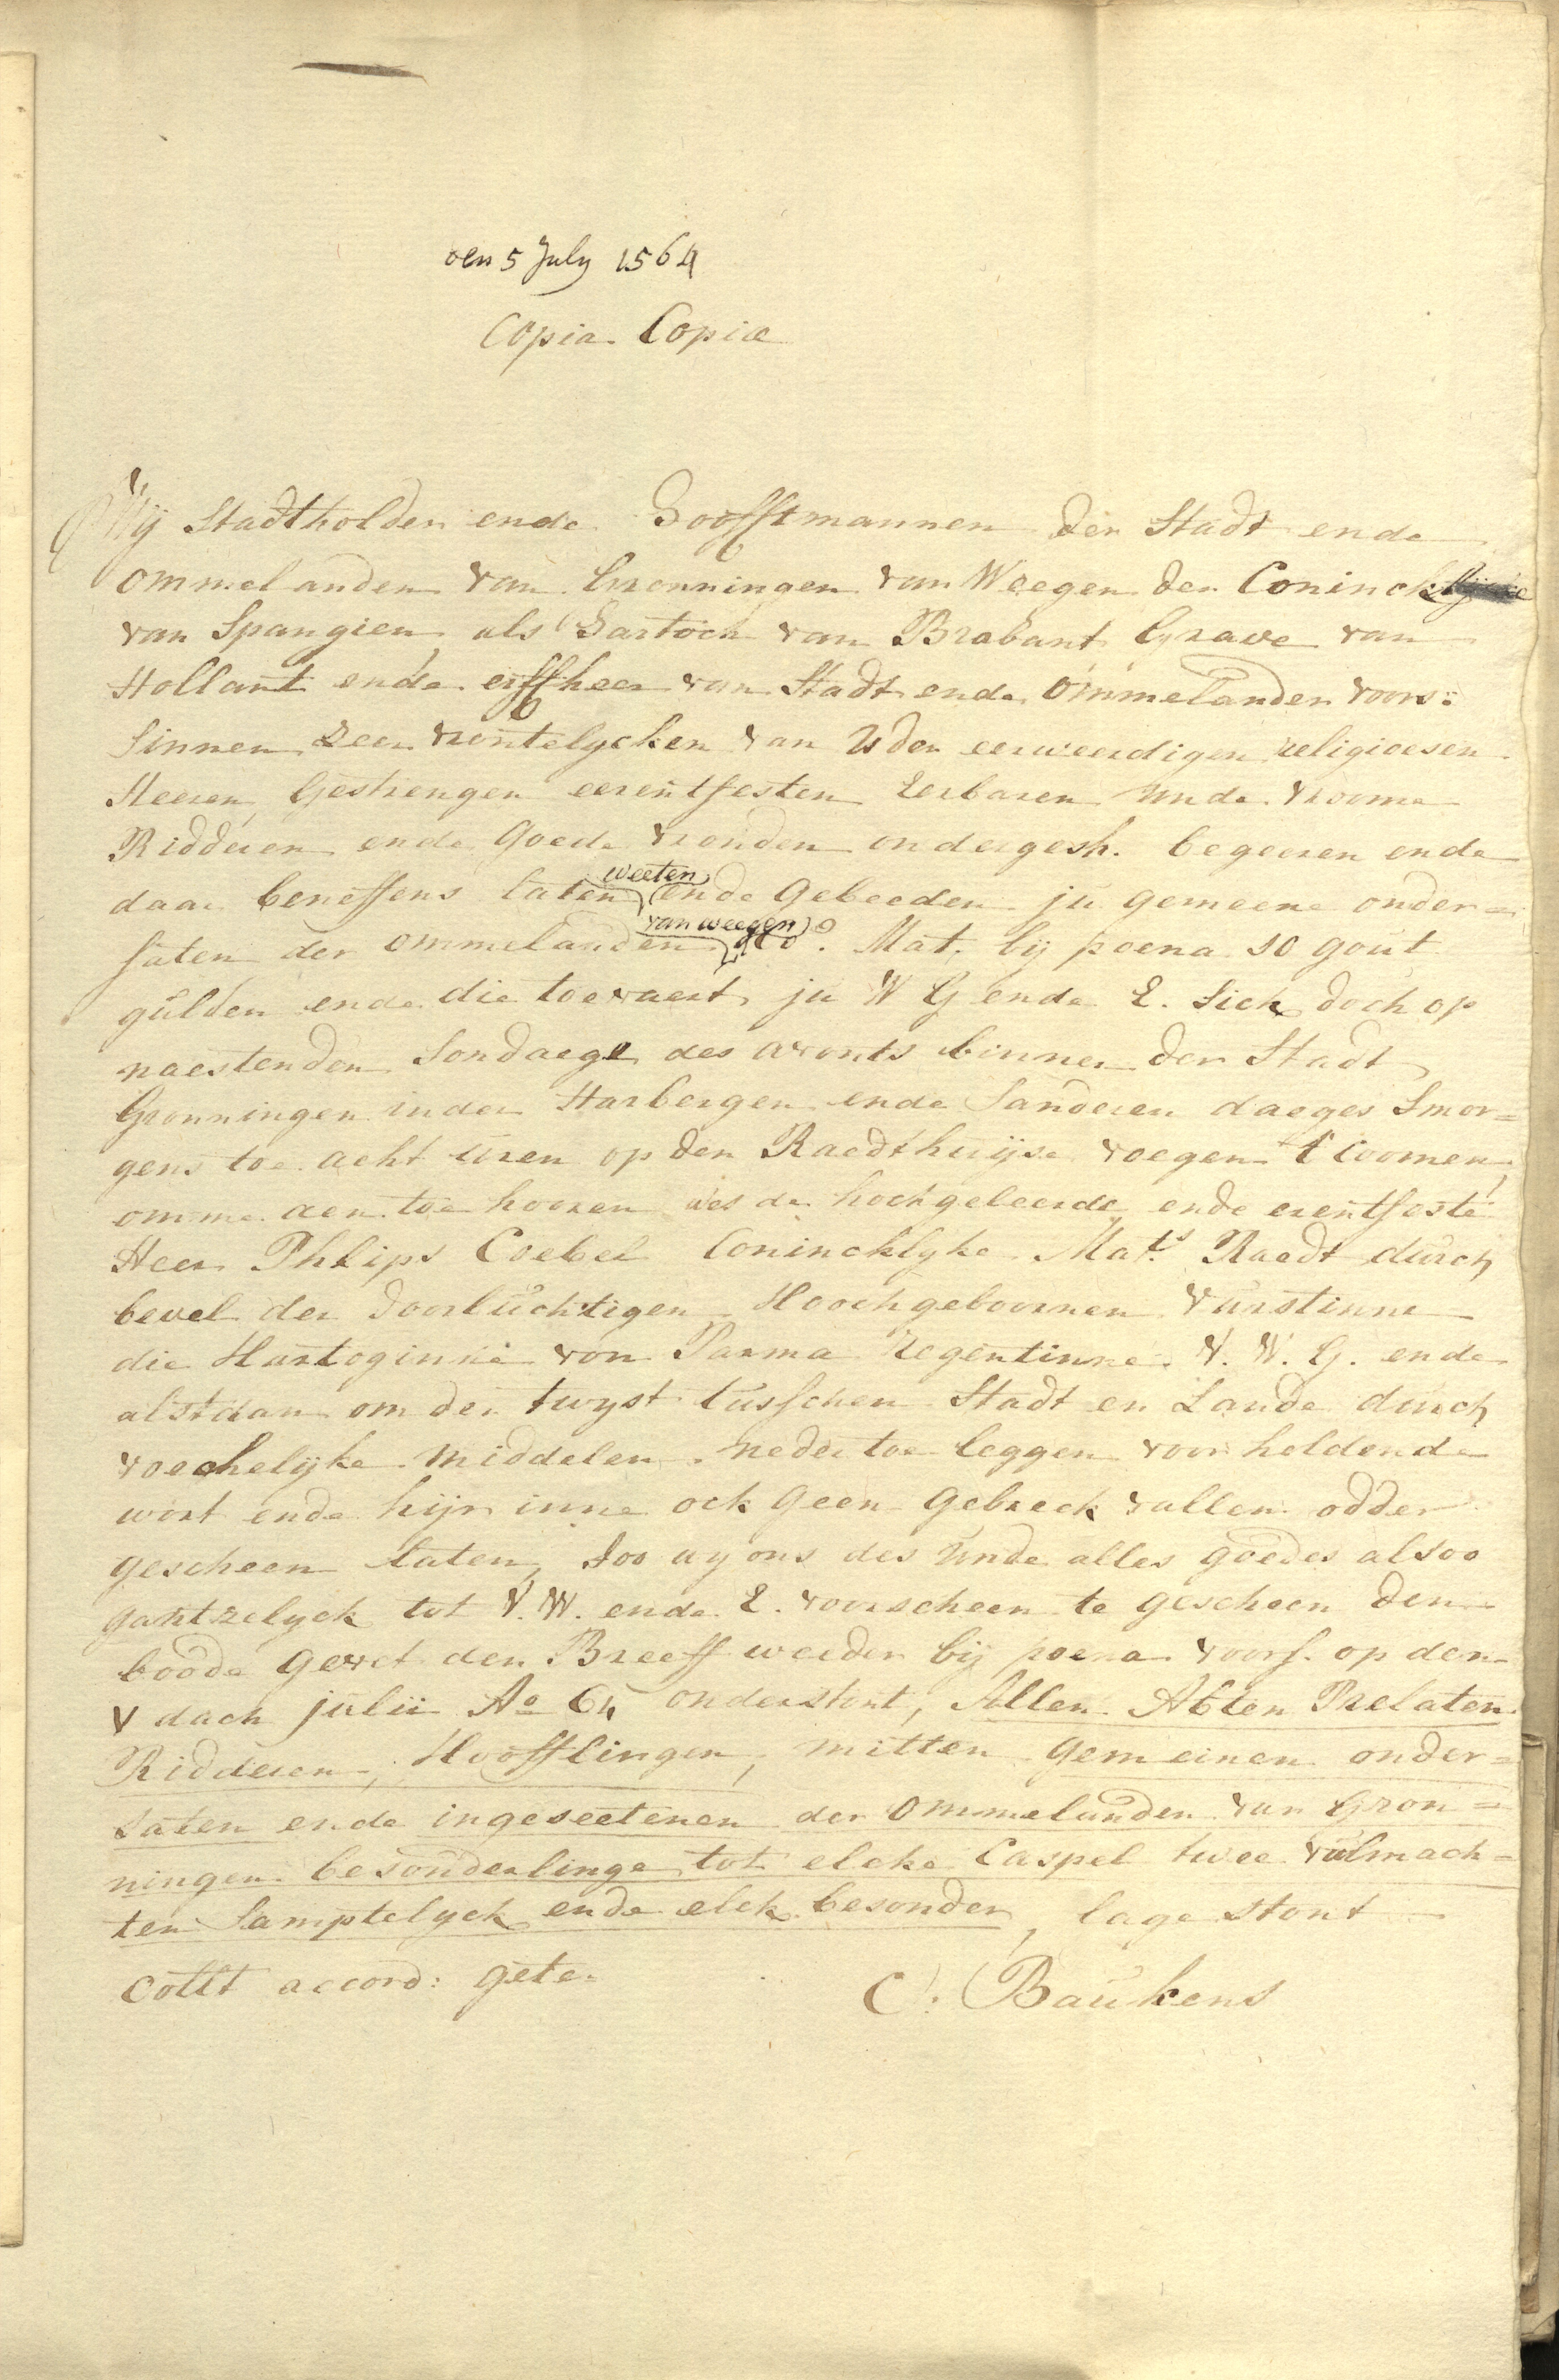 den 5 July 1564
Copia Copiæ
Wij Stadtholder ende Hooffstmannen der Stadt ende
ommelanden van Gronningen van Weegen der Coninck
van Spangien als Hartoch van Brabant Grave van
Hollant ende erffheer van Stadt ende ommelanden voors:
Sinnen zeer vrontelycken van U der eerweerdigen religioesen
Heeren, Gestrengen eerentfesten Eerbaren unde vroome
Ridderen ende Goede vronden ondergesh. begeeren ende
daar beneffens laten weeten ende Gebeeden ju gemeene onder=
saten der ommelanden van weegen Co. Mat. bij poena 10 gout
gulden ende die toevaert ju W G ende E. Sick doch op
naestenden Sondaege des avonts binnen der Stadt
Gronningen inder Harbergen ende Sanderen daeges Smor=
gens toe acht uren op den Raedthuijse voegen t coomen,
omme aen toe hooren wes de hochgeleerde ende erentfeste
Heer Phlips Coebel Conincklyke Mats Raedt durch
bevel der doorluchtigen Hoochgeboornen vurstinne
die Hartoginne von Parma Regentinne. V. W. G. ende
alstdan om den twyst tusschen Stadt en Lande durch
voechelijke middelen neder toe leggen voor holdende
wort ende hijr inne ock geen gebreck vallen odder
gescheen laten, soo wy ons des unde alles goedes alsoo
gantzelyck tot V. W. ende E. voorscheen te gescheen den
boode gevet den Breeff weeder bij poena voors. op den
V dach julii Ao 64 onderstont, Allen Abten Prelaten
Ridderen, Hooftlingen, mitten gemeinen onder=
saten ende ingeseetenen der ommelanden van Gron=
ningen besonderlinge tot elcke Caspel twee vulmach=
ten Samptelyck ende elck besonder, lage stont
collt accord: gete.
C. Baukens